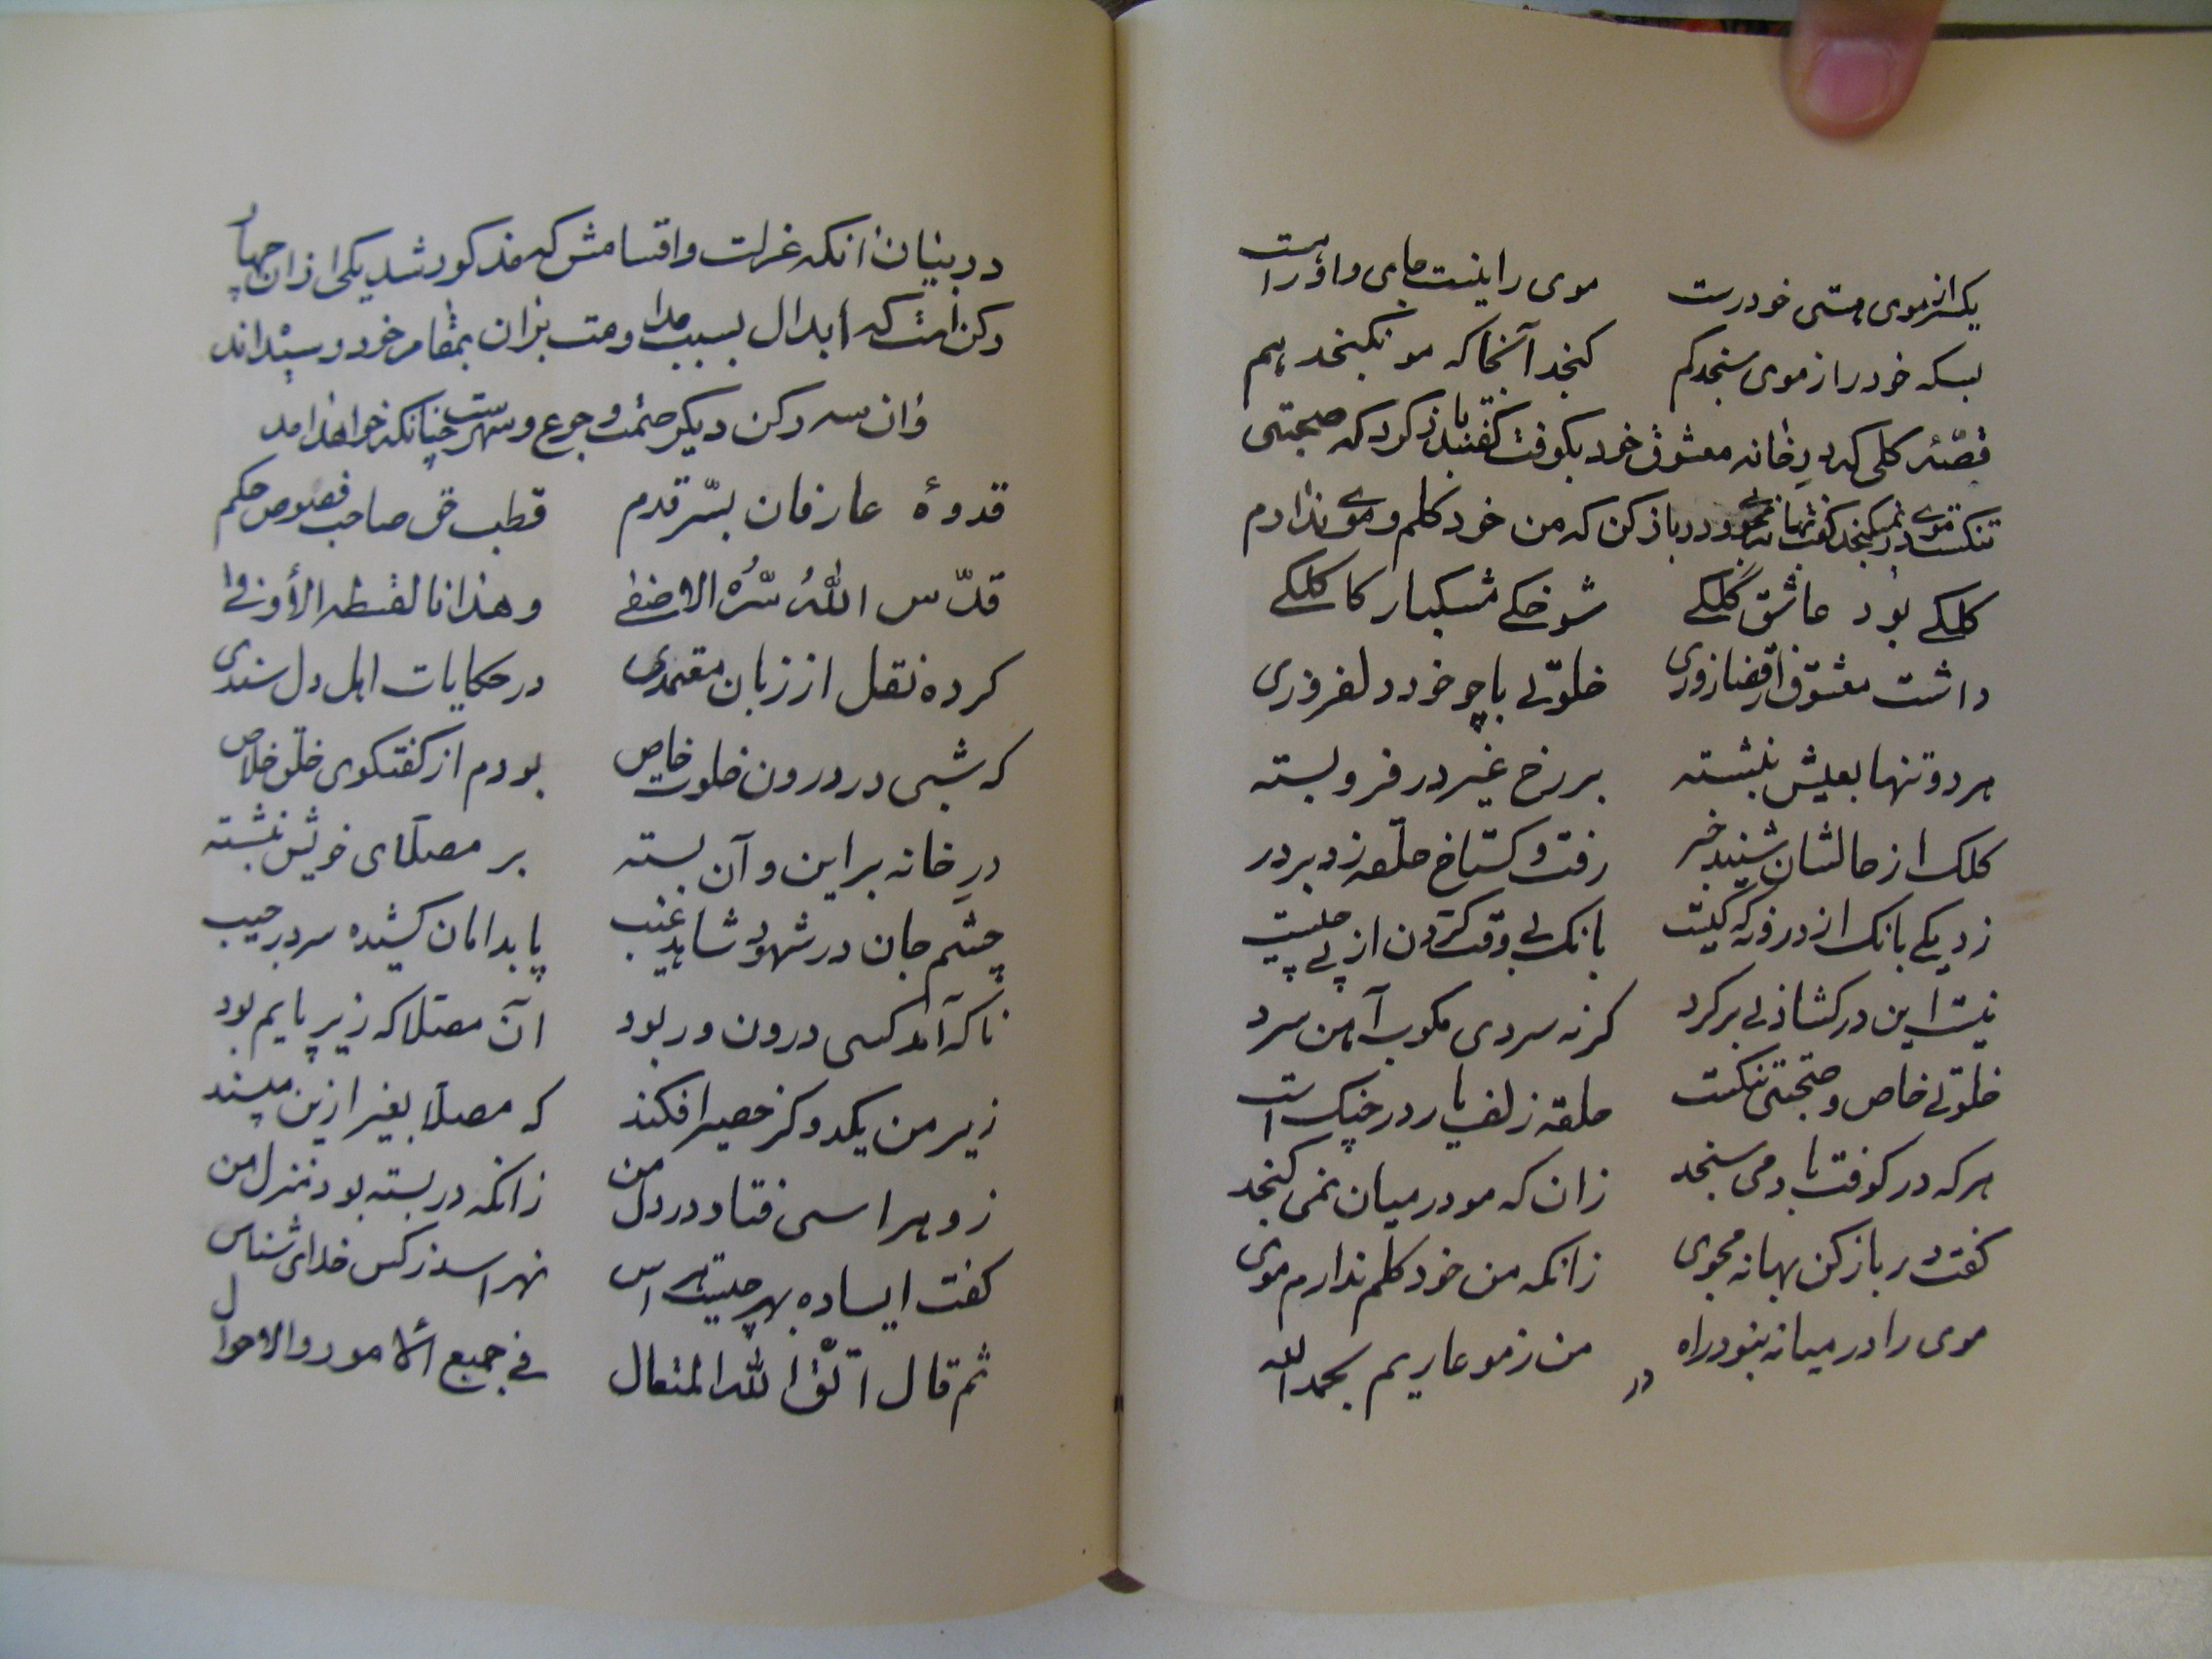 یکسر موی هستی خودرست موی را نیست جای و او را هست
بسکه خود را ز موی سنجد کم گنجد آنجا که مو نگنجد هم
قصّهٔ کلی که درِ خانه معشوق خود بکوفت گفتند باز گرد که صحبتی
تنگست موی در نمیگنجد گفت بهانه مجوی و در باز کن که من خود کلم و موے ندارم
کلکے بود عاشق گلکے شوخکے مشکبار کاکلکے
داشت معشوق از قضا روزی خلوتے با چو خود دلفروزی
هر دو تنها بعیش بنشسته بر رخ غیر در فرو بسته
کلک از حالشان شنید خبر رفت و گستاخ حلقه زد بر در
زد یکے بانگ از درون که کیست بانگ بے وقت کردن از پے چیست
نیست این در گشادنے برگرد گر نه سردی مکوب آهن سرد
خلوتے خاص و صحبتی تنگست حلقه زلف یار در چنگ است
هر که در کوفت باد می سنجد زان که مو در میان نمی گنجد
گفت در باز کن بهانه مجوی زانکه من خود کلم ندارم موی
موی را در میانه نبود راه من ز مو عاریم بحمد الله
در
در بیان آنکه عزلت و اقسامش که مذکور شد یکی از آن چهار
رکن است که ابدال بسبب مداومت بران بمقام خود رسیداند
و ان سه رکن دیگر صمت و جوع و سهرست چنانکه خواهد آمد
قدوهٔ عارفان بسّر قدم قطب حق صاحب فصوص حکم
قدّس اللهُ سّرُه الاصفے و هذانا لقسطه الأوفے
کرده نقل از زبان معتمدی در حکایات اهل دل سندی
که شبی در درون خلوت خاص بودم از گفتگوی خلق خلاص
درِ خانه بر این و آن بسته بر مصلّای خویش بنشسته
چشم جان در شهود شاهد غیب پا بدامان کشیده سر در جیب
ناگه آمد کسی درون و ربود آن مصلّا که زیر پایم بود
زیر من یکدو گز حصیر افکند که مصلّا بغیر ازین مپسند
زو هراسی فتاد در دل من زانکه در بسته بود منزل من
گفت ایساده بهر چیست هراس نهراسد ز کس خدای شناس
ثم قال اتّق الله المتعال فے جمیع الأمور والاحوال